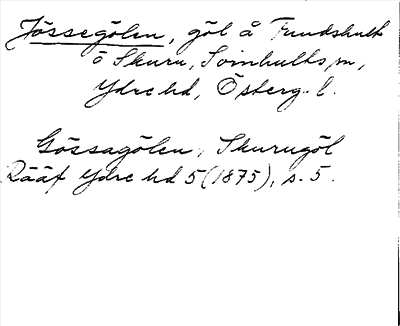 Jössegölen, göl å Fundshult
ö Skuru, Somhults, m,
Ydre hd, Österg. l.
Gössagölen, Skurugöl
Rääf Ydre hd 5 (1875), s. 5.